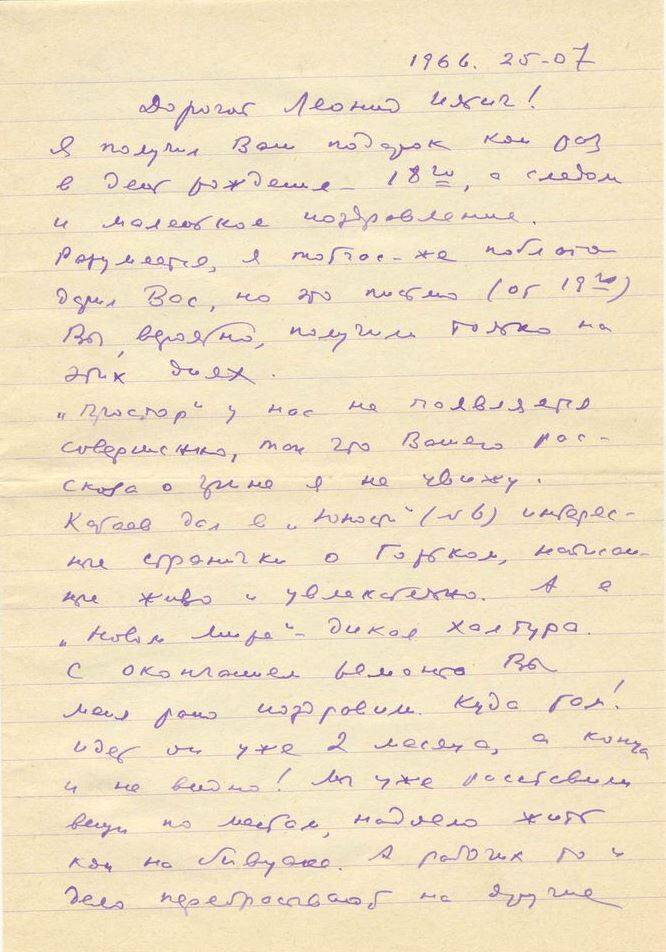 1966. 25-07
Дорогой Леонид Ильич!
Я получил Ваш подарок как раз
в день рождения – 18го, а следом
и маленькое поздравление.
Разумеется, я тотчас-же поблаго-
дарил Вас, но это письмо (от 19го)
Вы, вероятно, получили только на
этих днях.
„Простор" у нас не появляется
совершенно, так что Вашего рас-
сказа о Грине я не увижу.
Катаев дал в „Юности" (№6) интерес-
ные странички о Горьком, написан-
ные живо и увлекательно. А в
„Новом Мире" – дикая халтура.
С окончанием ремонта Вы
меня рано поздравили. Куда там!
идет он уже 2 месяца, а конца
и не видно! Мы уже расставили
вещи по местам, надоело жить
как на бивуаке. А рабочих то и
дело перебрасывают на другие